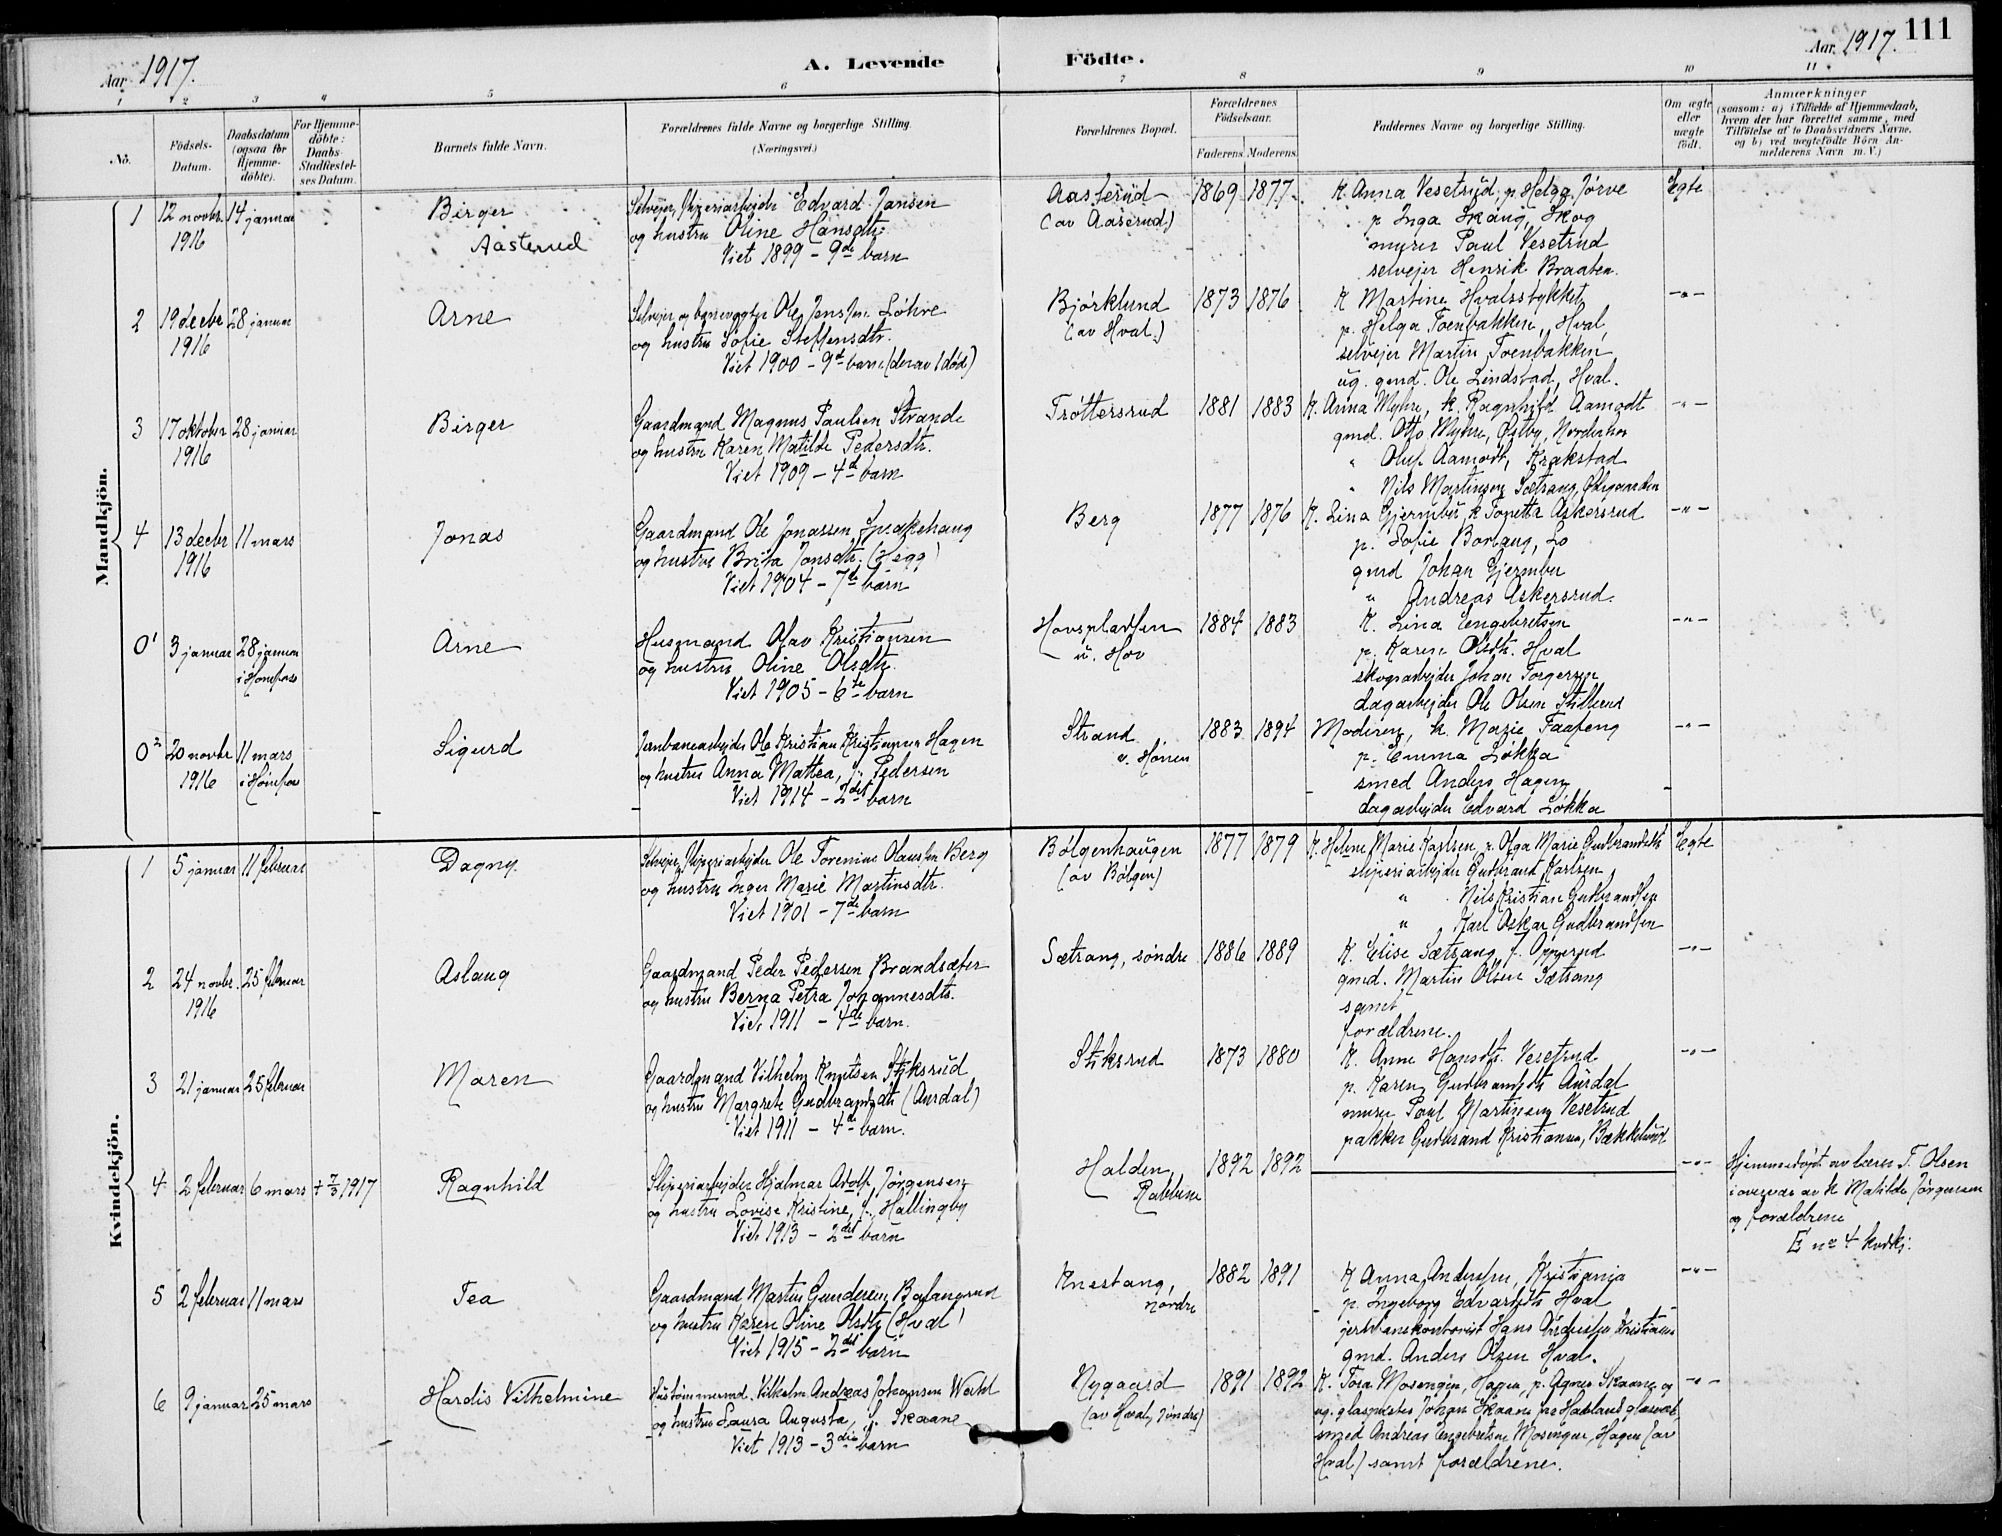 Aar 1917.
A. Levende
Födte.
Aar 1917.
111
1 2 3 4 5 6 7 8 9 10 11
No.
Födsels-
Datum.
Daabsdatum
(ogsaa for
Hjemme-
döbte).
For Hjemme-
döbte:
Daabs-
Stadfæstel-
ses Datum.
Barnets fulde Navn.
Forældrenes fulde Navne og borgerlige Stilling.
(Næringsvei.)
Forældrenes Bopæl.
Forældrenes
Födselsaar.
Faderens Moderens
Faddernes Navne og borgerlige Stilling.
Om ægte
eller
uægte
födt.
Anmærkninger
(saasom: a) i Tilfælde af Hjemmedaab,
hvem der har forrettet samme, med
Tilföielse af to Daabsvidners Navne.
og b) ved uægtefödte Börn An-
melderens Navn m. V.)
Mandkjön.
1 12 novbr. 14 januar
1916
Birger
Aasterud
Selveier, sliperiarbeider Edvard Jansen
og hustru Oline Hansdtr.
Viet 1899 - 9de barn
Aasterud
(av Aaserud)
1869 1877
K. Anna Vesetrud, p. Helga Jörve
p. Inga Skaug, Skog
murer Paul Vesetrud
selveier Henrik Braaten.
Egte
2 19 decbr 28 januar
1916
Arne
Selveier og banevogter Ole Jenssen Löhre
og hustru Sofie Steffensdtr.
Viet 1900 - 9de barn (derav 1 död)
Björklund
(av Hval.)
1873 1876
K Martine Hvalsstykket
p. Helga Toenbakken, Hval
selveier Martin Toenbakken
ug. gmd. Ole Lindstad, Hval.
-"-
3 17 oktober 28 januar
1916
Birger
Gaardmand Magnus Paulsen Strande
og hustru Karen Matilde Pedersdtr.
Viet 1909 - 4de barn
Tröttersrud
1881 1883
K. Anna Myhre, k. Ragnhild Aamodt
gmd. Otto Myhre, Östby, Norderhov
" Oluf Aamodt, Krakstad
" Nils Martinsen Sætrang, Ödegaarden
-"-
4 13 decbr 11 mars
1916
Jonas
Gaardmand Ole Jonassen Sprakehaug
og hustru Brita Jonsdtr. (Hegg)
Viet 1904 - 7de barn
Berg
1877 1876
K. Lina Gjermbu, k Tonette Askersrud
p. Sofie Borhaug, Lo
gmd Johan Gjermbu
" Andreas Askersrud.
-"-
0¹ 3 januar 28 januar
i Hönefos
Arne
Husmand Olav Kristiansen
og hustru Oline Olsdtr.
Viet 1905 - 6te barn
Hovsplassen
u. Hov
1884 1883
K. Lina Engebretsen
p. Karen Olsdtr. Hval
skogsarbeider Johan Torgersen
dagarbeider Ole Olsen Stillerud
-"-
0² 20 novbr 11 mars
1916 i Hönefos
Sigurd
Jernbanearbeider Ole Kristian Kristiansen Hagen
og hustru Anna Mattea, f. Pedersen
Viet 1914 - 2det barn
Strand
v. Hönen
1883 1894
Moderen, k. Marie Faafeng
p. Emma Lökka
smed Anders Hagen
dagarbeider Edvard Lökka
-"-
Kvindekjön.
1 5 januar 11 februar
Dagny
Selveier, sliperiarbeider Ole Torenius Olaussen Berg
og hustru Inger Marie Martinsdtr.
Viet 1901 - 7de barn
Bölgenhaugen
(av Bölgen)
1877 1879
K. Helene Marie Karlsen, p. Olga Marie Gudbrandsdtr
sliperiarbeider Gudbrand Karlsen
" Nils Kristian Gudbrandsen
" Karl Oskar Gudbrandsen
Egte
2 24 novbr. 25 februar
1916
Aslaug
Gaardmand Peder Pedersen Brandsæter
og hustru Berna Petra Johannesdtr.
Viet 1911 - 4de barn.
Sætrang, söndre
1886 1889
K. Elise Sætrang f. Oppegud
gmd. Martin Olsen Sætrang
samt
forældrene.
-"-
3 21 januar 25 februar
Maren
Gaardmand Vilhelm Knutsen Styksrud
og hustru Margrete Gudbrandsdtr (Aurdal)
Viet 1911 - 4de barn.
Styksrud
1873 1880
K. Anne Hansdtr. Vesetrud
p. Karen Gudbrandsdtr Aurdal
murer Paul Martinsen Vesetrud
pakker Gudbrand Kristiansen, Bækkelund
-"-
4 2 februar 6 mars + 7/3 1917
Ragnhild
Sliperiarbeider Hjalmar Adolf Jörgensen
og hustru Lovise Kristine, f. Hallingby
Viet 1913 - 2det barn
Halden,
Rabbene
1892 1892
-"-
Hjemmedöpt av lærer T. Olsen
i overvær av k Matilde Jörgensen
og forældrene
E no 4 kvdkj.
5 2 februar 11 mars
Tea
Gaardmand Martin Gundersen Borlaugrud
og hustru Karen Oline Olsdtr (Hval)
Viet 1915 - 2det barn
Knestang,
nordre
1882 1891
K Anna Anderssen, Kristiania
p. Ingeborg Edvardsdtr Hval
jernbanekontorist Hans Anderssen Kristiania
gmd. Anders Olsen Hval.
-"-
6 9 januar 25 mars
Hardis Vilhelmine
Hustömmermd. Vilhelm Andreas Johansen Wahl
og hustru Laura Augusta, f. Skaane
Viet 1913 - 3die barn
Nygaard
(av Hval, söndre)
1891 1892
K. Tora Mosengen, Hagen, p. Agnes Skaane og
ug. glaspuster Johan Skaane fra Hadeland glasverk
smed Andreas Engebretsen Mosengen, Hagen (av
Hval) samt forældrene.
-"-